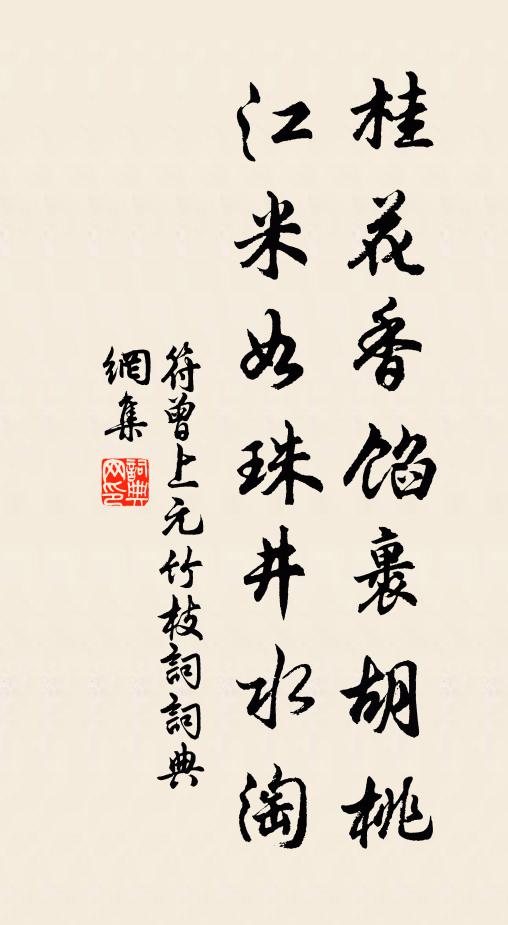 桂花香馅裹胡桃
江米如珠井水淘
符曾上元竹枝詞詞典
網集
詞典網印